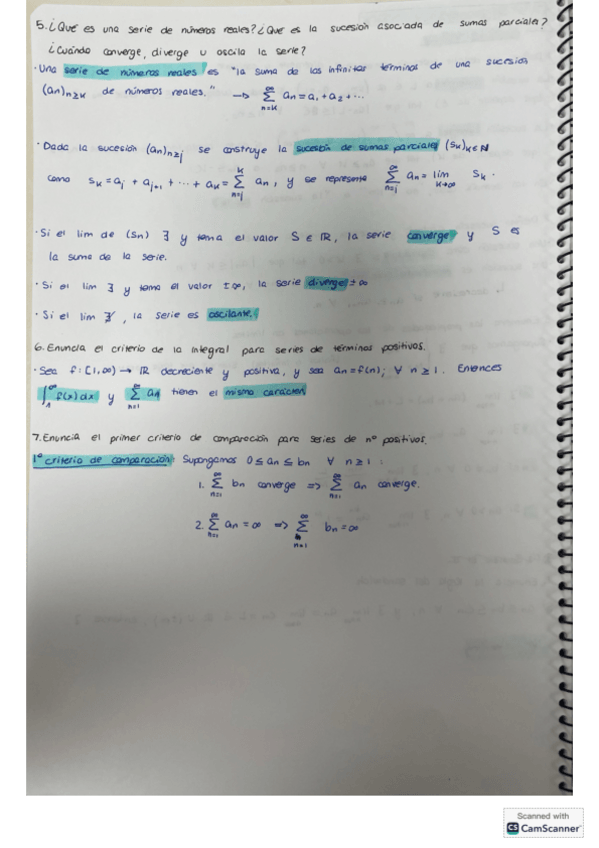 5. ¿Que es una serie de números reales? ¿Que es la sucesión asociada de sumas parciales?
¿Cuándo converge, diverge u oscila la serie?
· Una serie de números reales es "la suma de los infinitos términos de una sucesión
(an)n≥k de números reales." → ∞∑n=k an = a1 + a2 + ···
· Dada la sucesión (an)n≥j se construye la sucesión de sumas parciales (Sk)k∈N
como Sk = aj + aj+1 + ··· + ak = k∑n=j an, y se representa ∞∑n=j an = lim k→∞ Sk.
· Si el lim de (Sn) ∃ y toma el valor S ∈ ℝ, la serie converge y S es
la suma de la serie.
· Si el lim ∃ y toma el valor ±∞, la serie diverge ±∞
· Si el lim ∄, la serie es oscilante.
6. Enuncia el criterio de la integral para series de términos positivos.
· Sea f: [1,∞) → ℝ decreciente y positiva, y sea an = f(n); ∀ n ≥ 1. Entonces
∫1^∞ f(x)dx y ∞∑n=1 an tienen el mismo carácter
7. Enuncia el primer criterio de comparación para series de nº positivos.
1º criterio de comparación: Supongamos 0 ≤ an ≤ bn ∀ n ≥ 1:
1. ∞∑n=1 bn converge => ∞∑n=1 an converge.
2. ∞∑n=1 an = ∞ => ∞∑n=1 bn = ∞
Scanned with
CS CamScanner